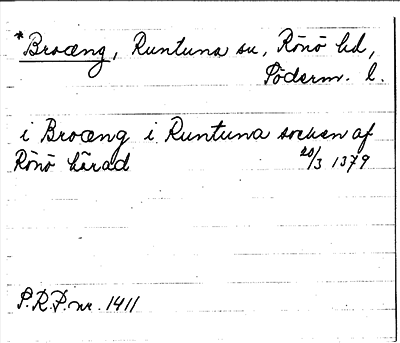 *Broæng, Runtuna sn, Rönö hd,
Söderm. l.
i Broæng i Runtuna socken af
Rönö härad 20/3 1379
S.R.P. nr. 1411